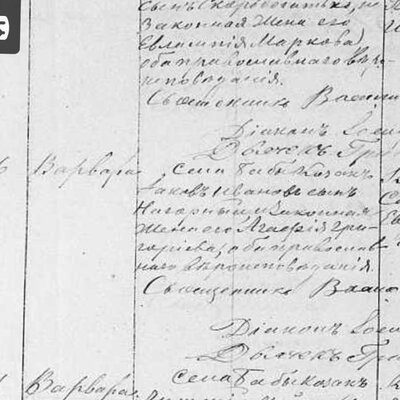 сынъ Скоробогатько, и
Законная жена его
Евлампія Маркова,
оба православнаго вѣро-
исповѣданія.
Священникъ Васил
Діаконъ Іоси
Дьячекъ Гри
Варвара
Села Бабы казакъ
Іаковъ Ивановъ сынъ
Нагорный и законная
жена его Агафія Гри-
горіева, оба православ-
наго вѣроисповѣданія.
Священникъ Васил
Діаконъ Іоси
Дьячекъ Гри
Варвара
Села Бабы казакъ